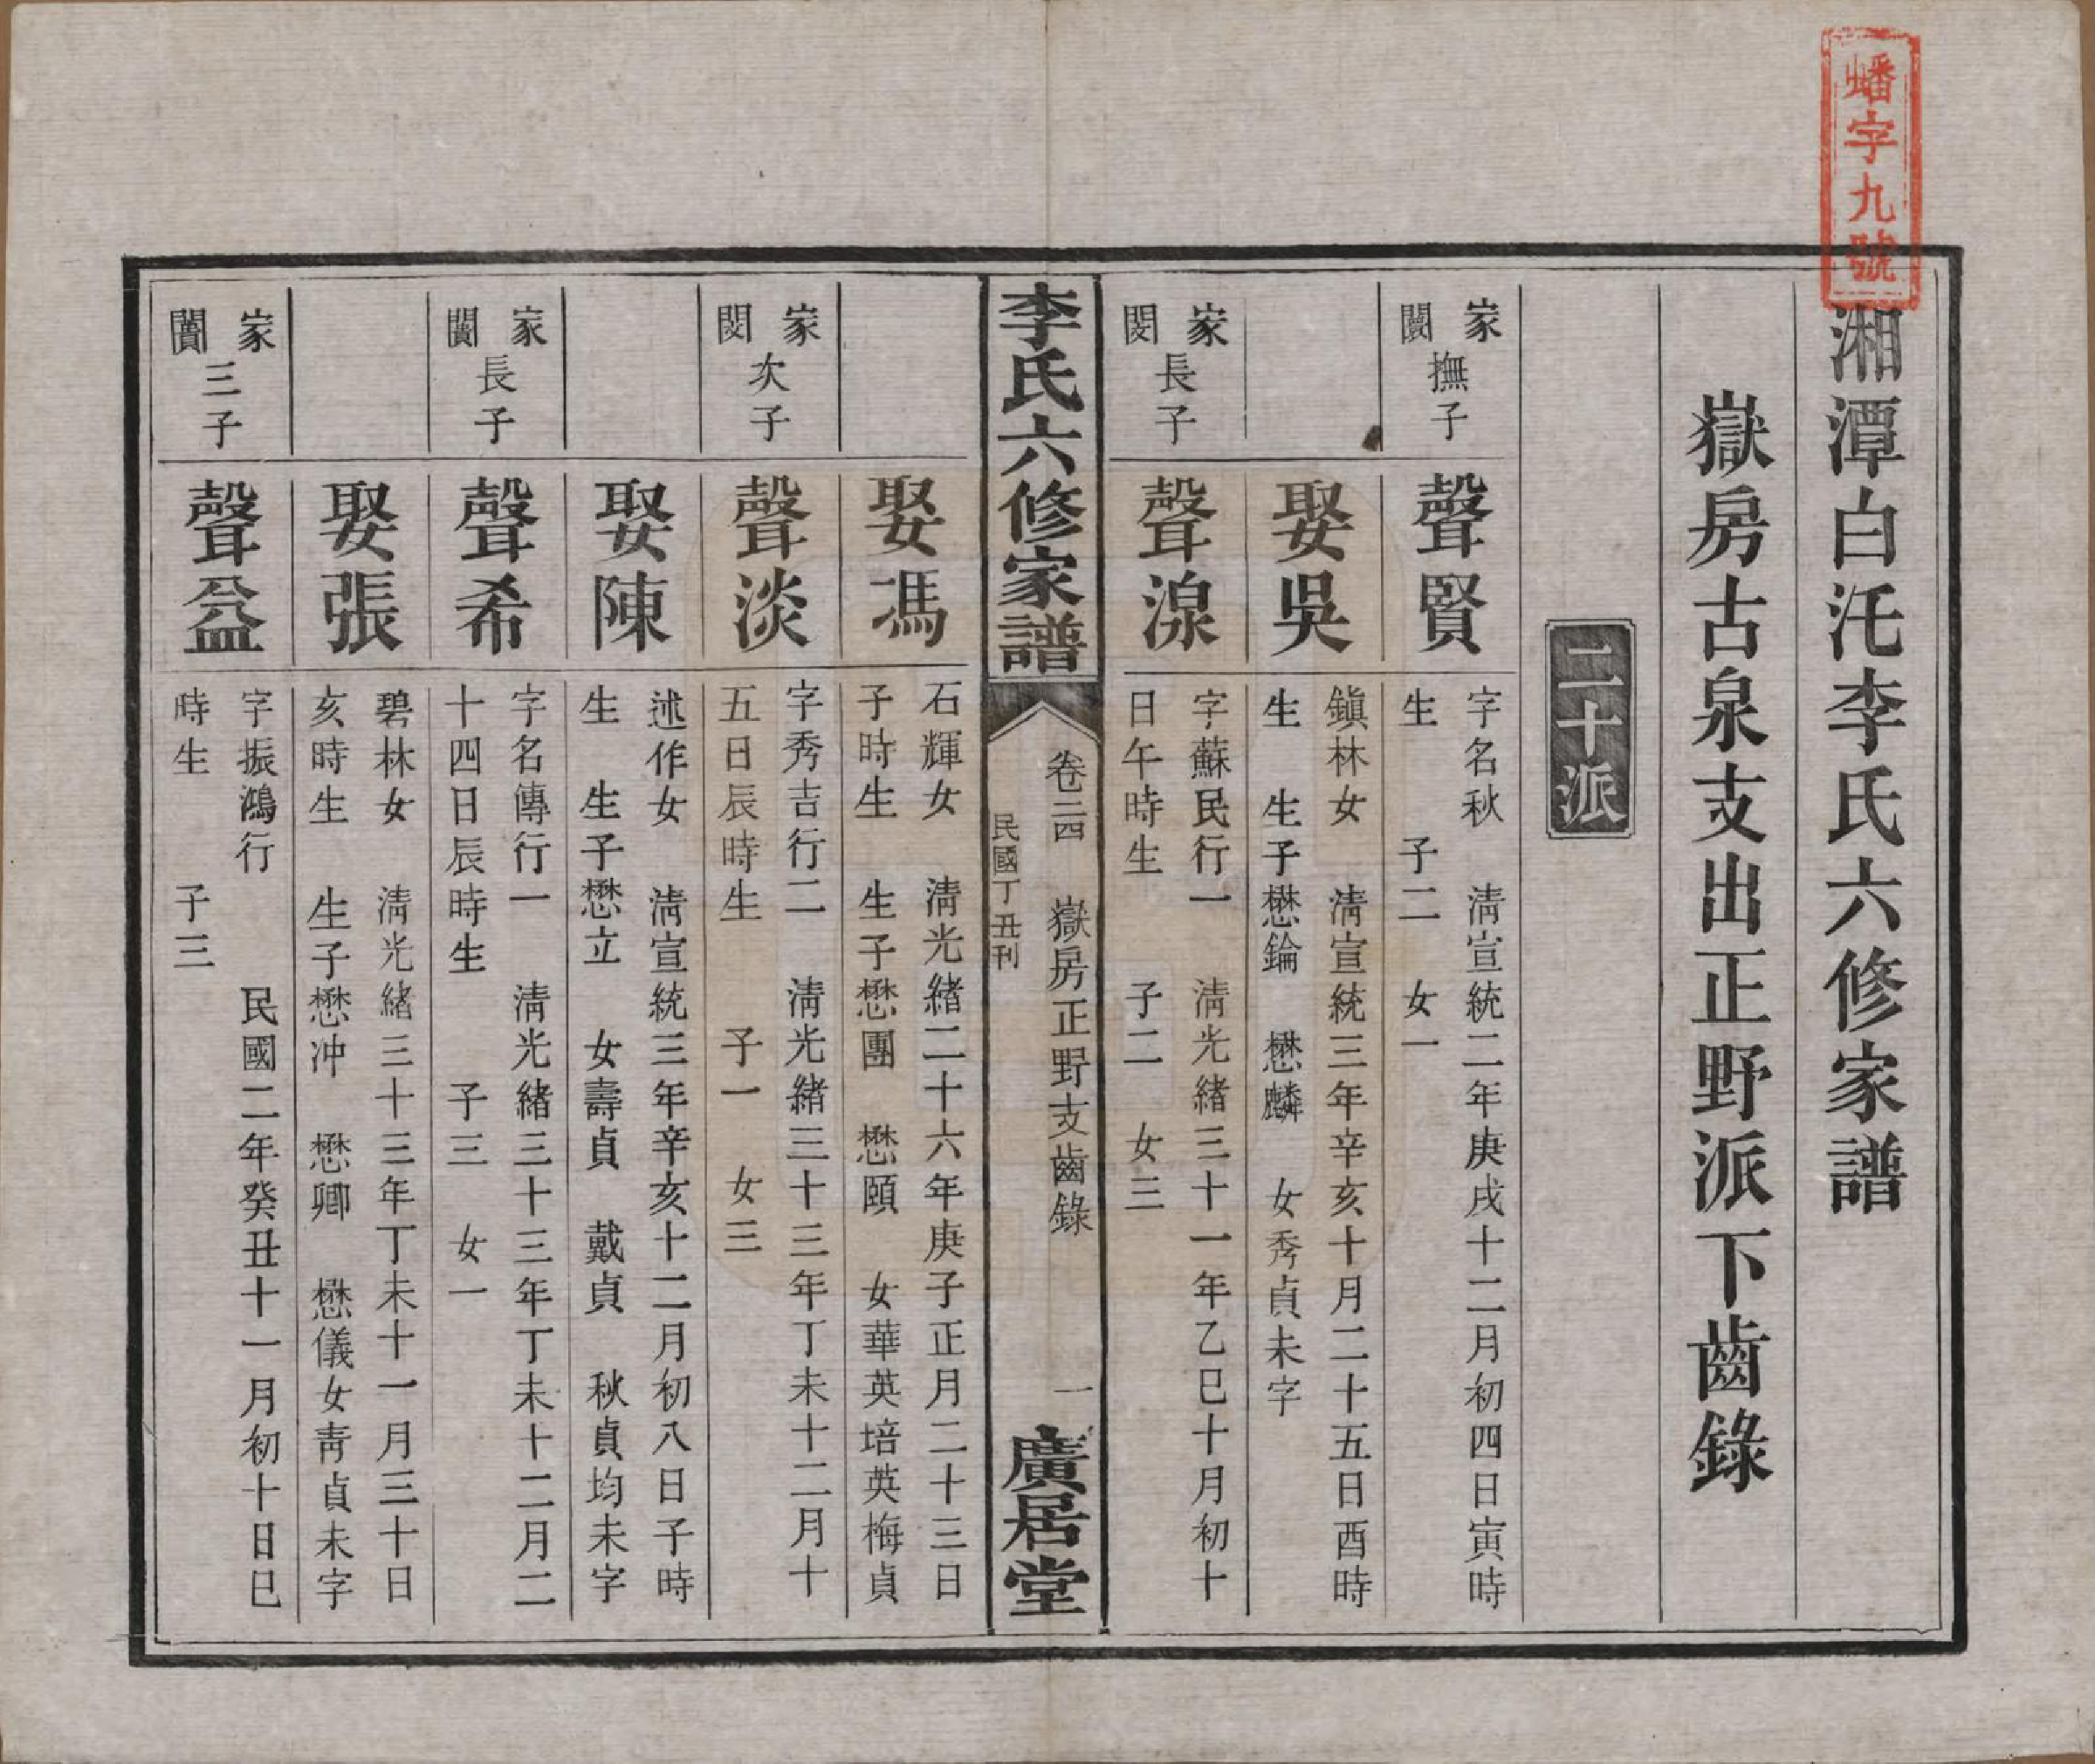 蟠字九號
湘潭白汑李氏六修家譜
嶽房古泉支出正野派下齒錄
二十派
家闅撫子
聲賢
字名秋　清宣統二年庚戌十二月初四日寅時
生　子二　女一
娶吳
鎭林女　清宣統三年辛亥十月二十五日酉時
生　生子懋錀　懋麟　女秀貞未字
家閔長子
聲湶
字蘇民行一　清光緒三十一年乙巳十月初十
日午時生　子二　女三
李氏六修家譜
卷二四　嶽房正野支齒錄　一
民國丁丑刊
廣居堂
娶馮
石輝女　清光緒二十六年庚子正月二十三日
子時生　生子懋團　懋頤　女華英培英梅貞
家閔次子
聲淡
字秀吉行二　清光緒三十三年丁未十二月十
五日辰時生　子一　女三
娶陳
述作女　清宣統三年辛亥十二月初八日子時
生　生子懋立　女壽貞　戴貞　秋貞均未字
家長子
聲希
字名傳行一　清光緒三十三年丁未十二月二
十四日辰時生　子三　女一
娶張
碧林女　清光緒三十三年丁未十一月三十日
亥時生　生子懋冲　懋卿　懋儀女靑貞未字
家三子
聲益
字振鴻行　民國二年癸丑十一月初十日巳
時生　子三